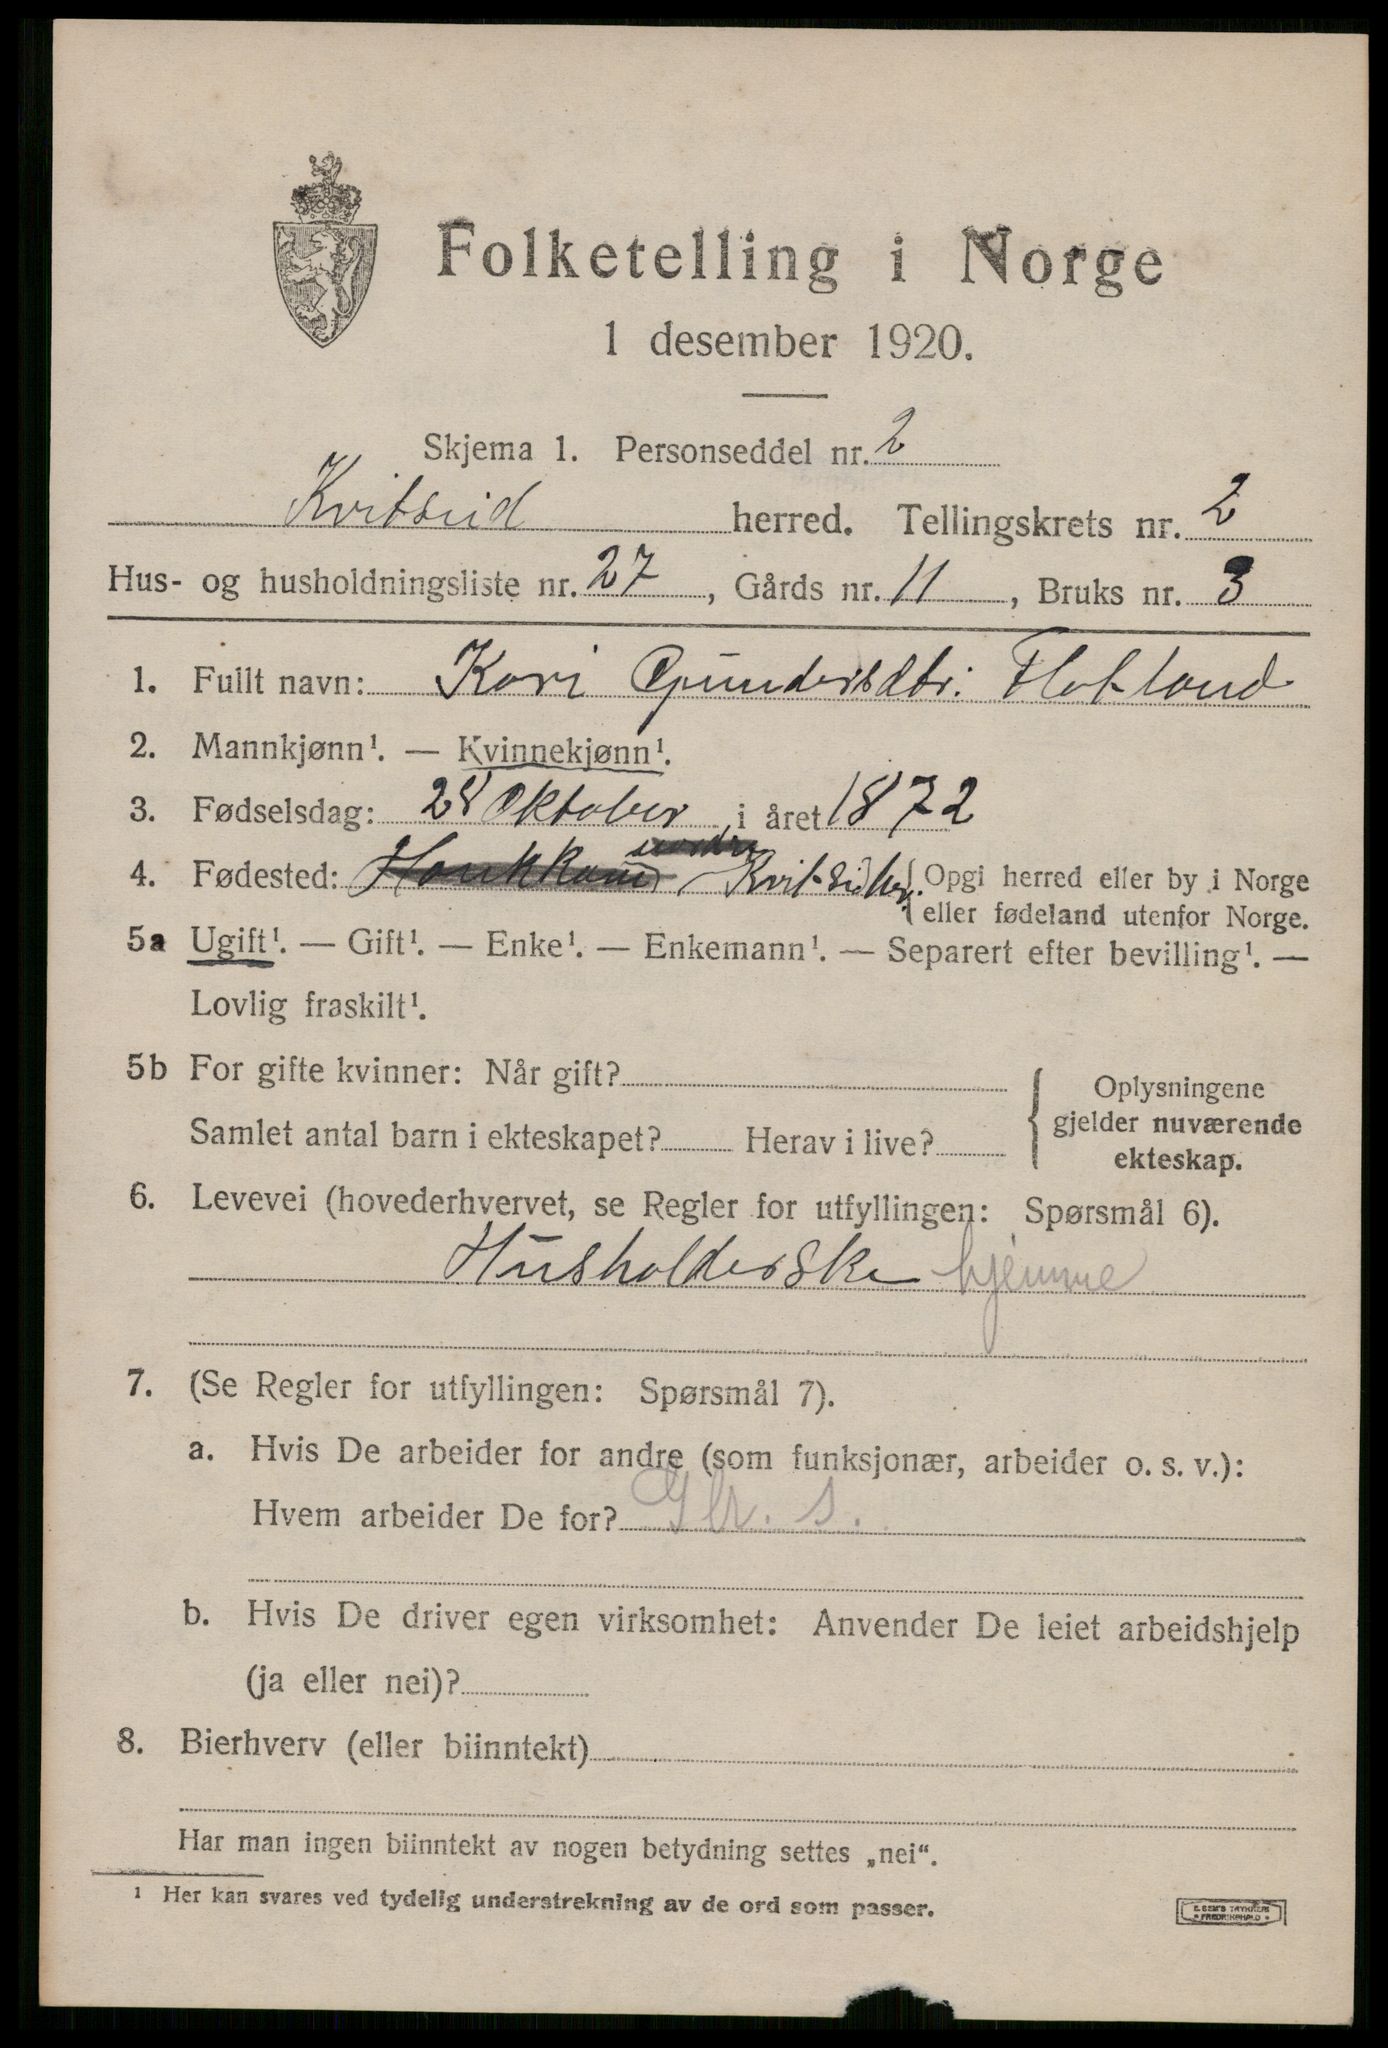 Folketelling i Norge
1 desember 1920.
Skjema 1. Personseddel nr. 2
Kvitseid herred. Tellingskrets nr. 2
Hus- og husholdningsliste nr. 27, Gårds nr. 11, Bruks nr. 3
1. Fullt navn: Kari Gundersdtr. Flatland
2. Mannkjønn¹. — Kvinnekjønn¹.
3. Fødselsdag: 28 Oktober, i året 1872
4. Fødested: Kvitsid hr. { Opgi herred eller by i Norge
eller fødeland utenfor Norge.
5a Ugift¹. — Gift¹. — Enke¹. — Enkemann¹. — Separert efter bevilling¹. —
Lovlig fraskilt¹.
5b For gifte kvinner: Når gift?
Samlet antal barn i ekteskapet? Herav i live?
{ Oplysningene
gjelder nuværende
ekteskap.
6. Levevei (hovederhvervet, se Regler for utfyllingen: Spørsmål 6).
Husholderske hjemme
7. (Se Regler for utfyllingen: Spørsmål 7).
a. Hvis De arbeider for andre (som funksjonær, arbeider o. s. v.):
Hvem arbeider De for?
b. Hvis De driver egen virksomhet: Anvender De leiet arbeidshjelp
(ja eller nei)?
8. Bierhverv (eller biinntekt)
Har man ingen biinntekt av nogen betydning settes „nei“.
¹ Her kan svares ved tydelig understrekning av de ord som passer.
E. SEM'S TRYKKERI
* FREDRIKSHALD *